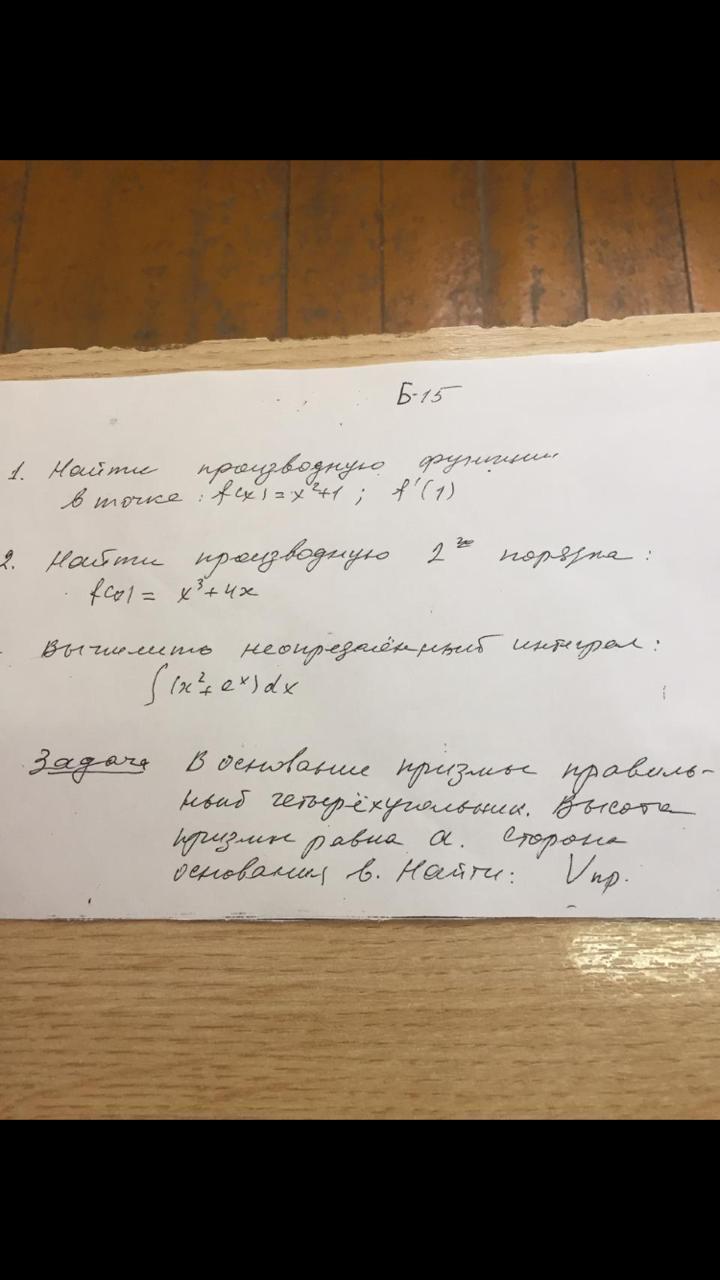 Б-15
1. Найти производную функции
в точке: f(x)=x²+1; f'(1)
2. Найти производную 2го порядка:
f(x)= x³+4x
Вычислить неопределённый интеграл:
∫(x²+eˣ)dx
Задача В основание призмы правиль-
ный четырёхугольник. Высота
призмы равна а. Сторона
основания в. Найти: Vпр.